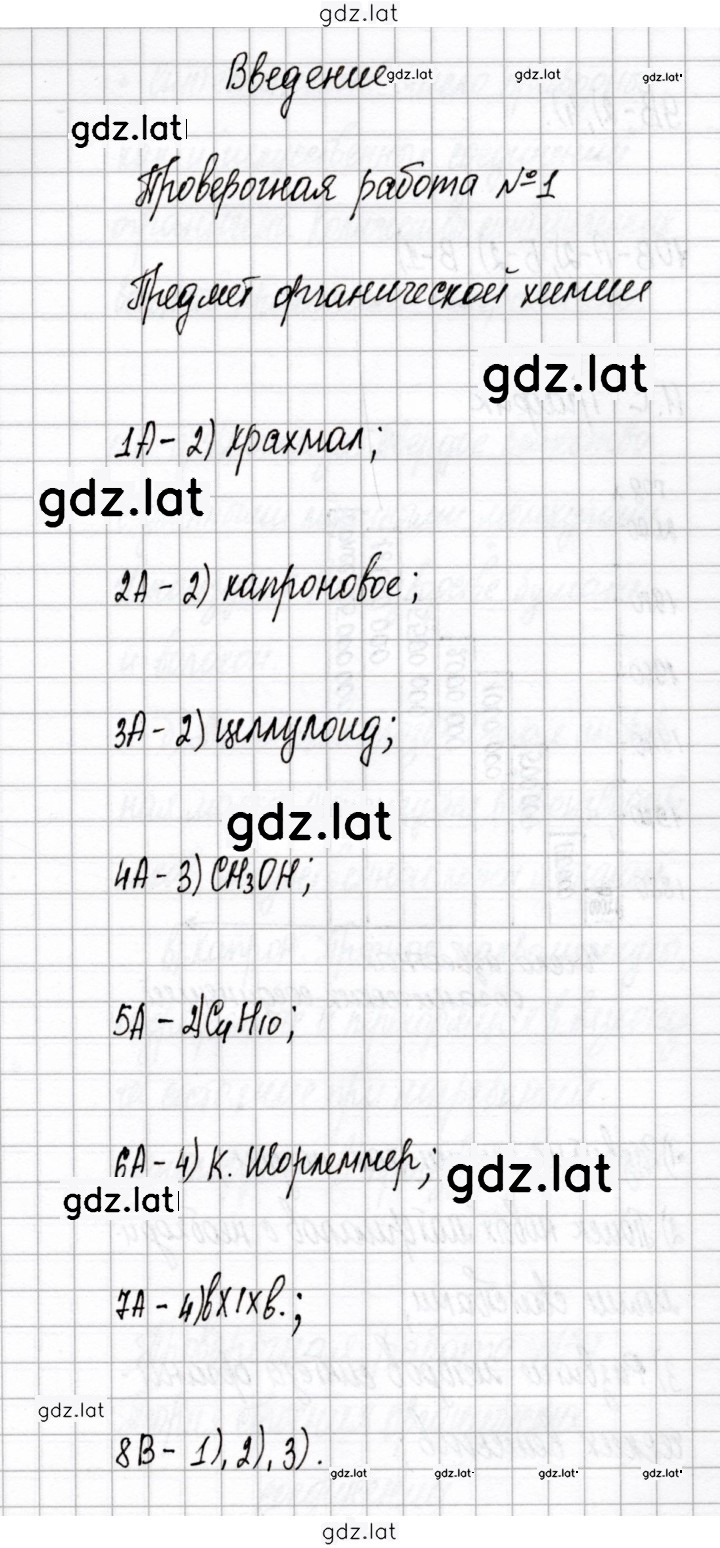 gdz.lat
Введение gdz.lat gdz.lat gdz.lat
gdz.lat
Проверочная работа №1
Предмет органической химии
gdz.lat
1А - 2) крахмал;
gdz.lat
2А - 2) капроновое;
3А - 2) целлулоид;
gdz.lat
4А - 3) CH3OH;
5А - 2) C4H10;
6А - 4) К. Шорлеммер; gdz.lat
gdz.lat
7А - 4) в XIX в.;
gdz.lat
8В - 1), 2), 3).
gdz.lat gdz.lat gdz.lat gdz.lat
gdz.lat